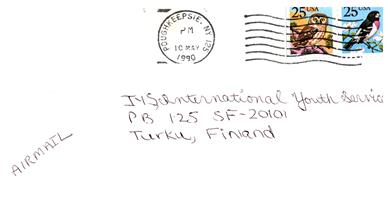 POUGHKEEPSIE, NY 125
PM
10 MAY
1990
25 USA
25 USA
International Youth Servic
PB 125 SF-20101
Turku, Finland
AIRMAIL